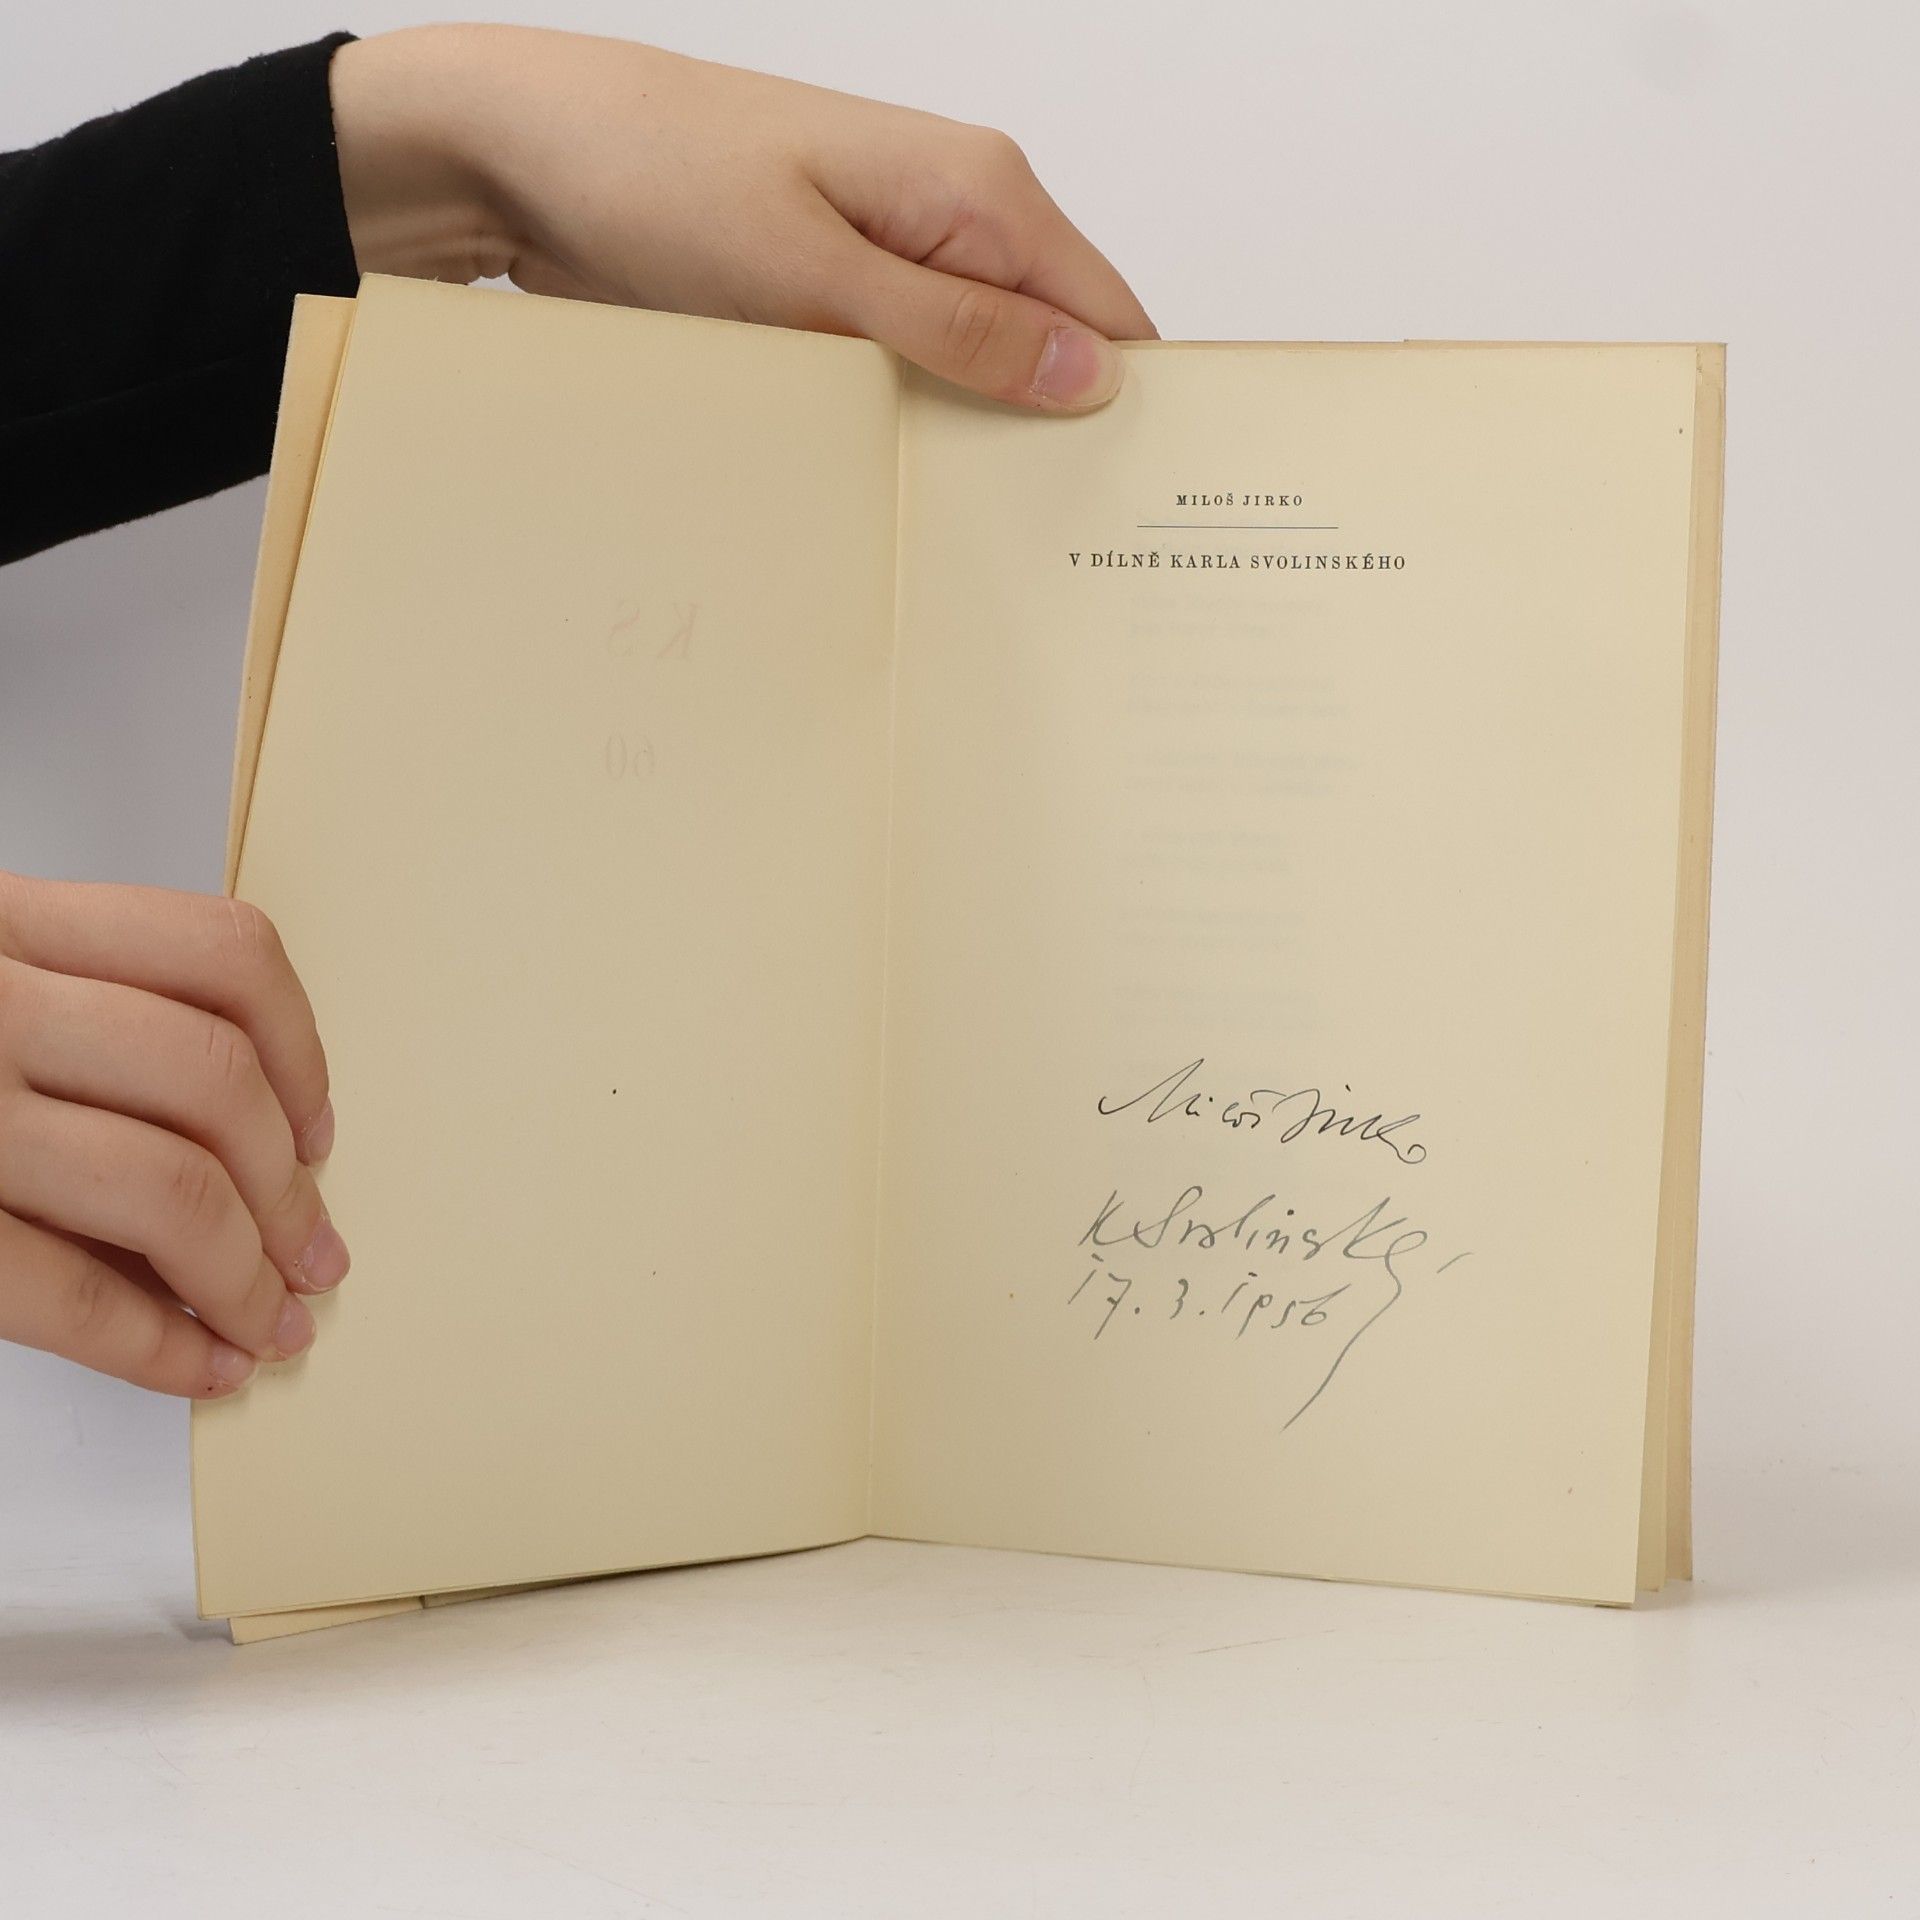 K S
60
MILOŠ JIRKO
V DÍLNĚ KARLA SVOLINSKÉHO
Miloš Jirko
K Svolinský
17. 3. 1956